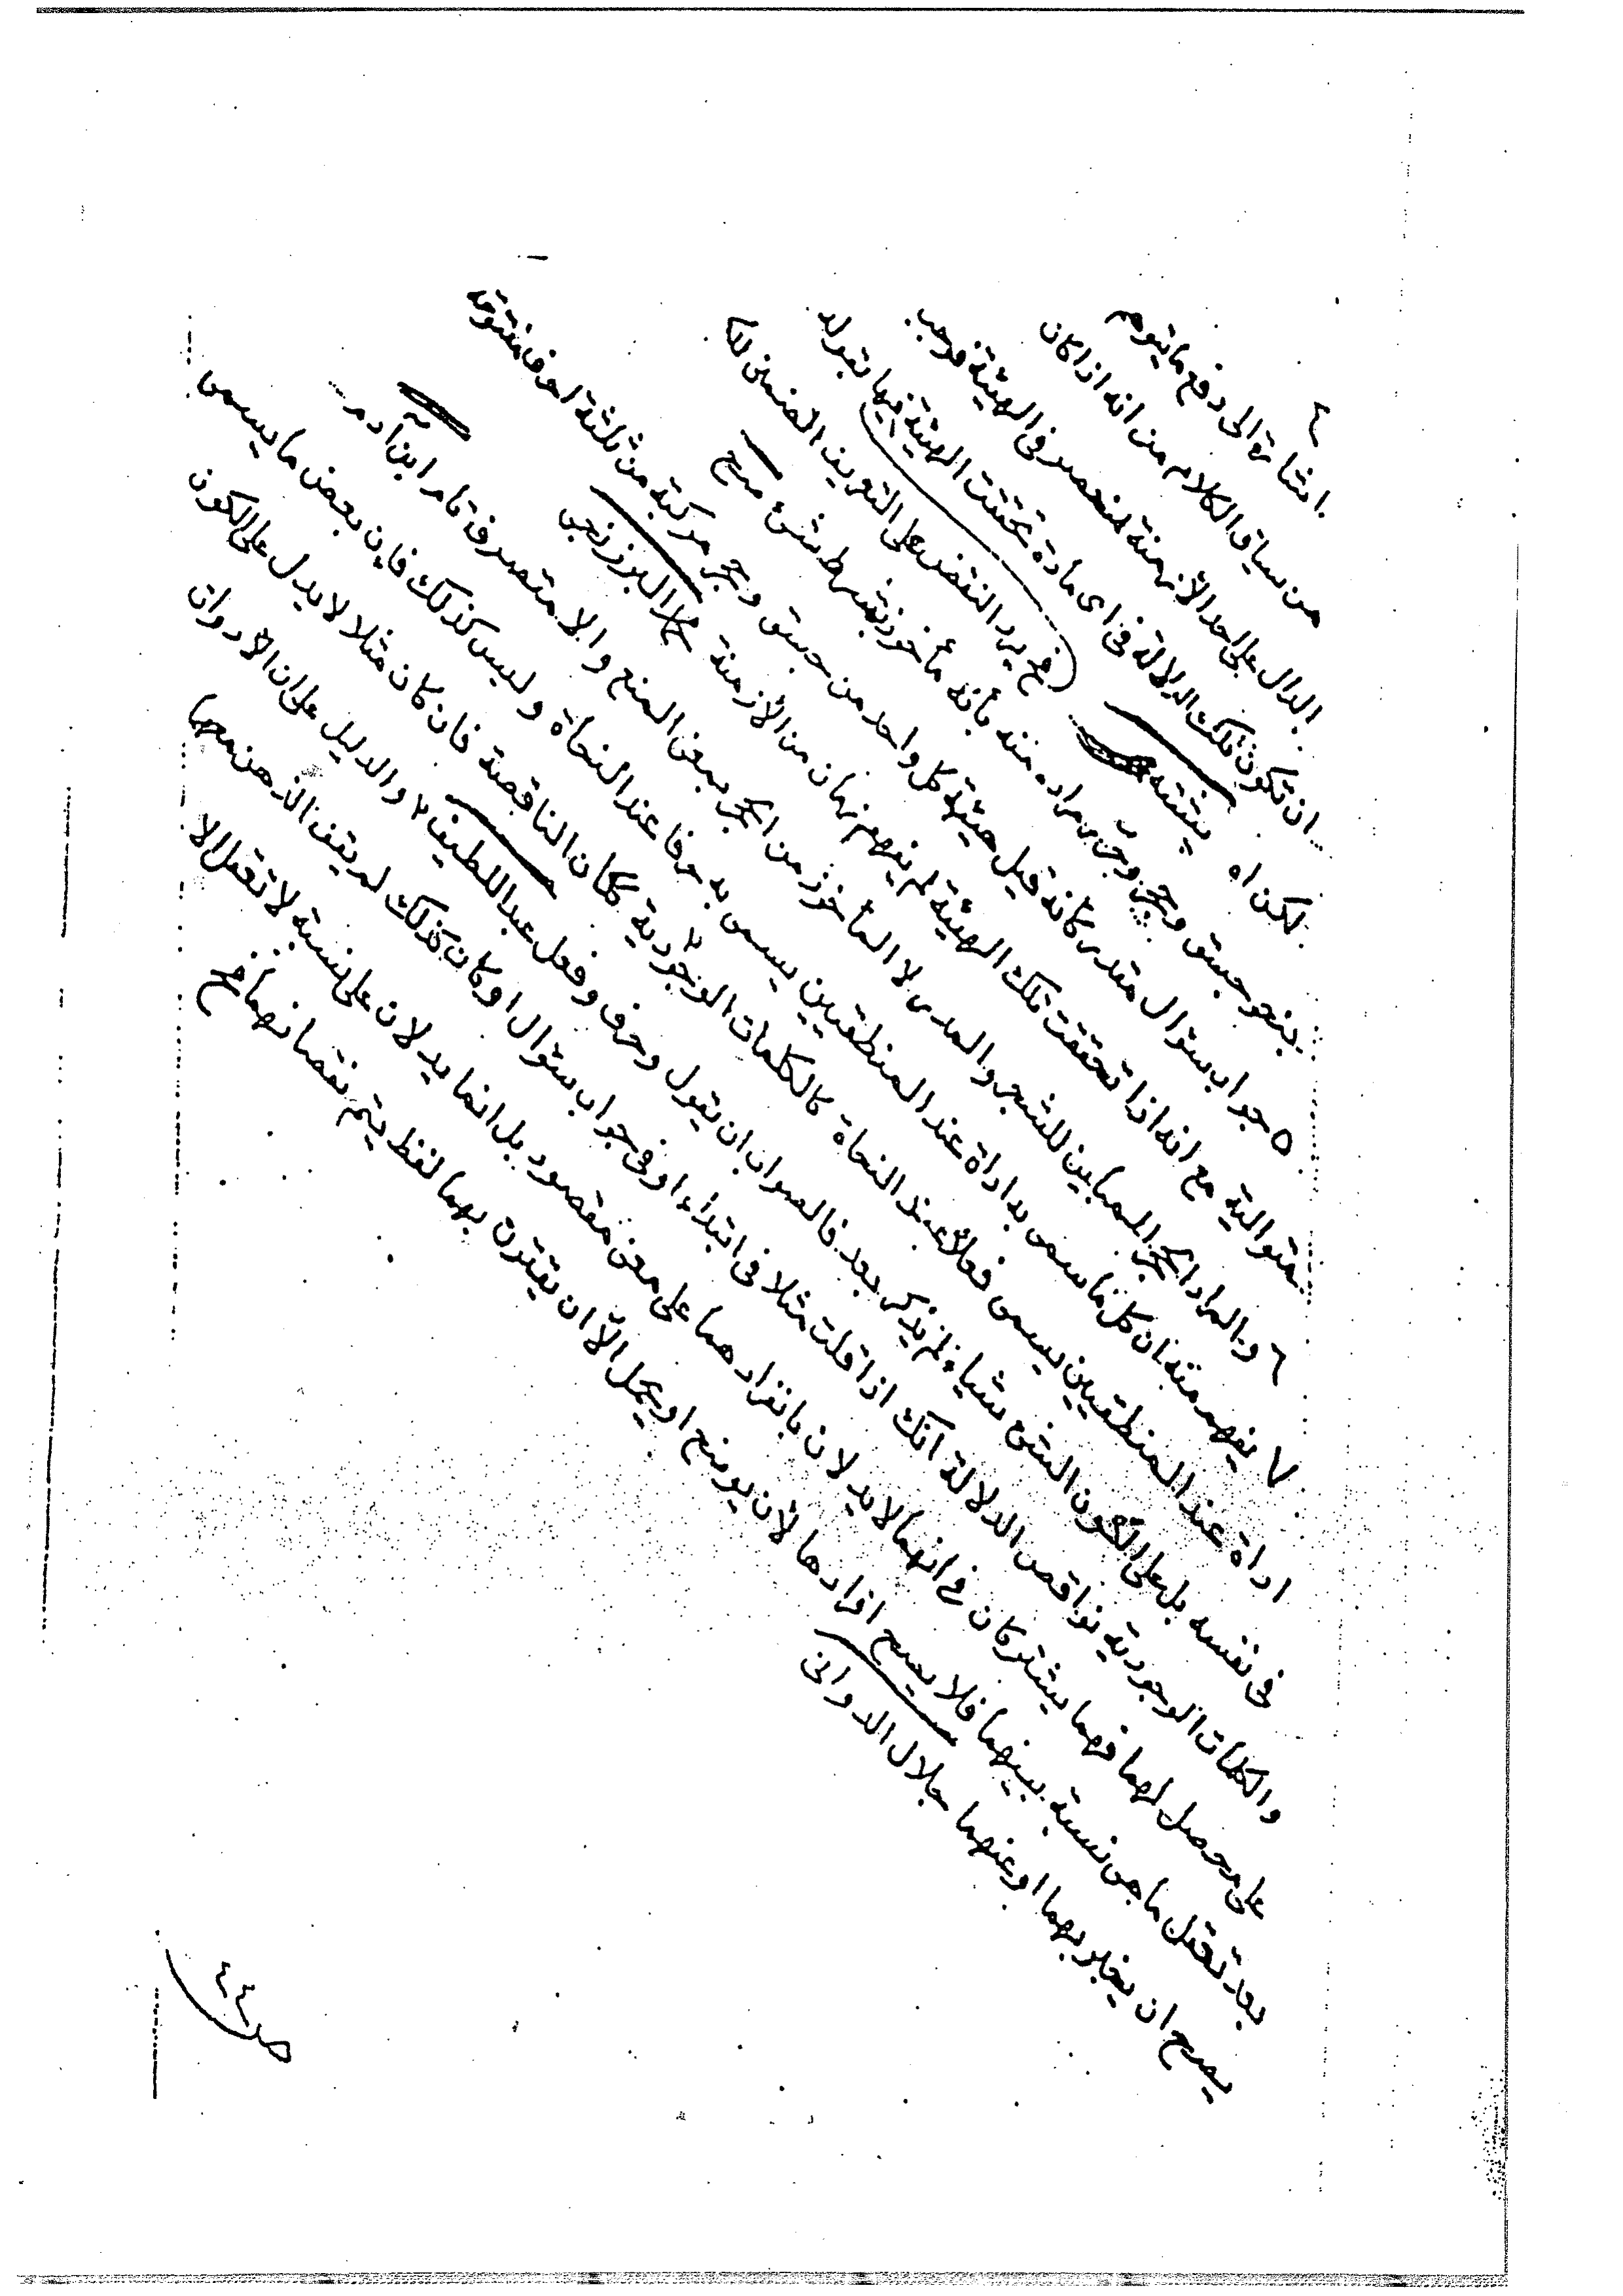 ٤
اشارة الى دفع ما يتوهم
من سياق الكلام من انه اذا كان
الدال على احد الأزمنة منحصر فى الهيئة فوجب
ان تكون تلك الدلالة فى اى مادة تحققت الهيئة فيها بقوله
لكن اه يثبته فح يرد النقض على التعريف الضمنى للكلمة
بنحو جسق وحجر وحق مراده منه بأنه مأخوذ بشرط شئ
٥ جواب سؤال مقدر كأنه قيل هيئة كل واحد من جسق وحجر مركبة من ثلثة احرف مفتوحة
متوالية مع انه اذا تحققت تلك الهيئة لم يفهم زمان من الأزمنة البرزنجى
٦ والمراد الحجر المباين للشجر والمدر لا المأخوذ من الحجر بمعنى المنع والا متصرف تام ابن آدم
٧ يفهم منه ان كل ما سمى به اداة عند المنطقيين يسمى به حرفا عند النحاة وليس كذلك فان بعض ما يسمى
اداة عند المنطقيين يسمى فعلا عند النحاة كالكلمات الوجودية ككان الناقصة فان كان مثلا لا يدل على الكون
فى نفسه بل على الكون الشئ شيأ لم يذكر بعد فالصواب ان يقول وحرف وفعل عبد اللطيف ٢ والدليل على ان الأدوات
والكلمات الوجودية نواقص الدلالة انك اذا قلت مثلا فى ابتداء او فى جواب سؤال او كان كذلك لم يقف الذهن معهما
على محصل لهما فهما يشتركان فى انهما لا يدلان بانفرادهما على معنى مقصود بل انما يدلان على نسبة لا تعقل الا
بعد تعقل ما هى نسبة بينهما فلا يصح افرادها لأن يوضع او يحمل الا ان يقترن بهما لفظ يتم نقصانهما فح
يصح ان يخبر بهما او عنهما جلال الدوانى
صـ ٤٤